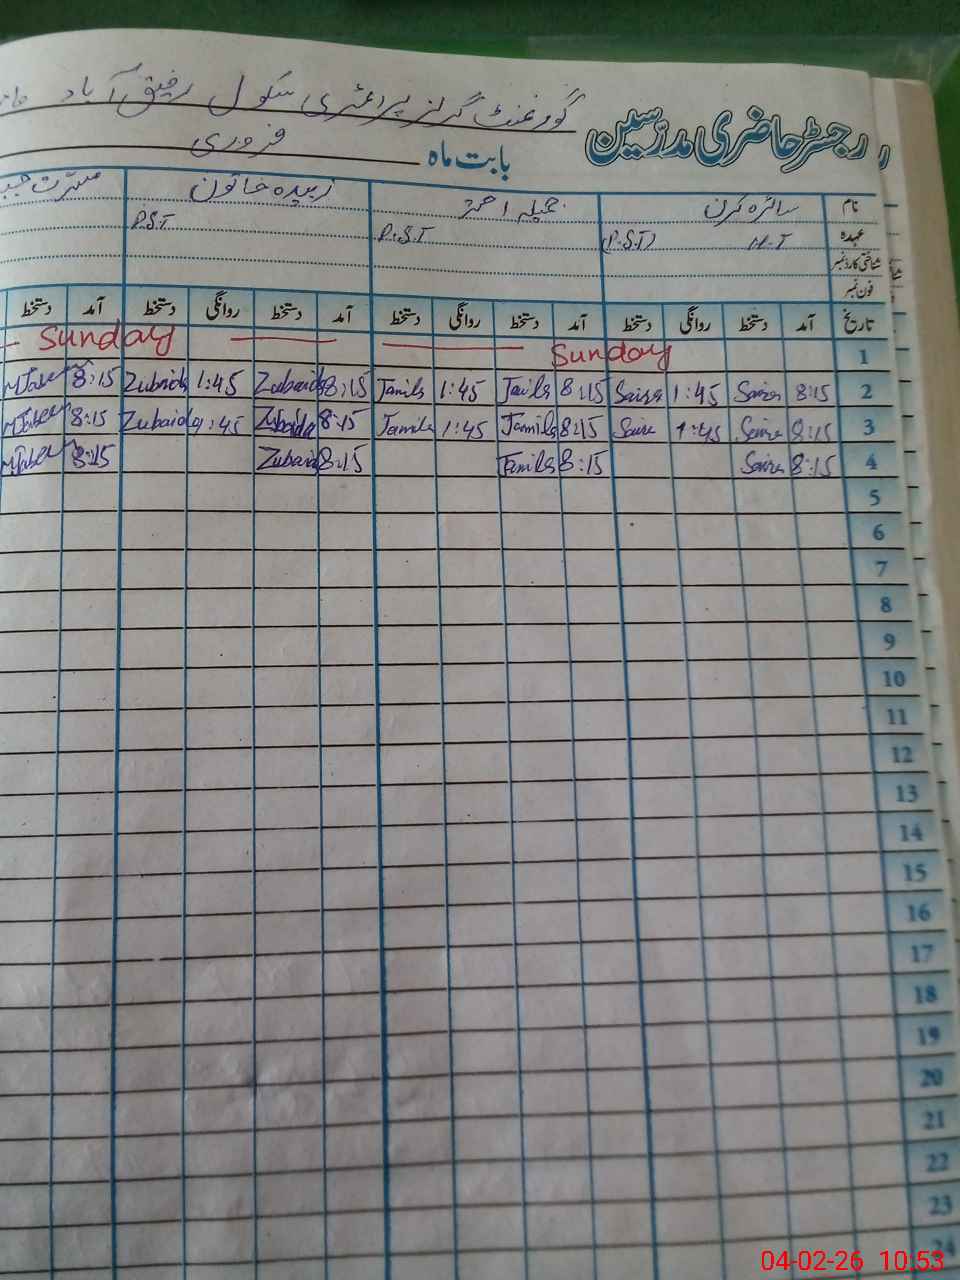 گورنمنٹ گرلز پرائمری سکول رفیق آباد
رجسٹر حاضری مدرسین
بابت ماہ فروری
نام سائرہ کرن جمیلہ احمد زبیدہ خاتون مسرت
عہدہ H.T (P.S.T) P.S.T P.S.T
شناختی کارڈ نمبر
فون نمبر
تاریخ آمد دستخط روانگی دستخط آمد دستخط روانگی دستخط آمد دستخط روانگی دستخط آمد دستخط
1 Sunday Sunday
2 8:15 Saira 1:45 Saira 8:15 Jamila 1:45 Jamila 8:15 Zubaida 1:45 Zubaida 8:15
3 8:15 Saira 1:45 Saira 8:15 Jamila 1:45 Jamila 8:15 Zubaida 1:45 Zubaida 8:15
4 8:15 Saira 8:15 Jamila 8:15 Zubaida 8:15
5
6
7
8
9
10
11
12
13
14
15
16
17
18
19
20
21
22
23
24
04-02-26 10:53